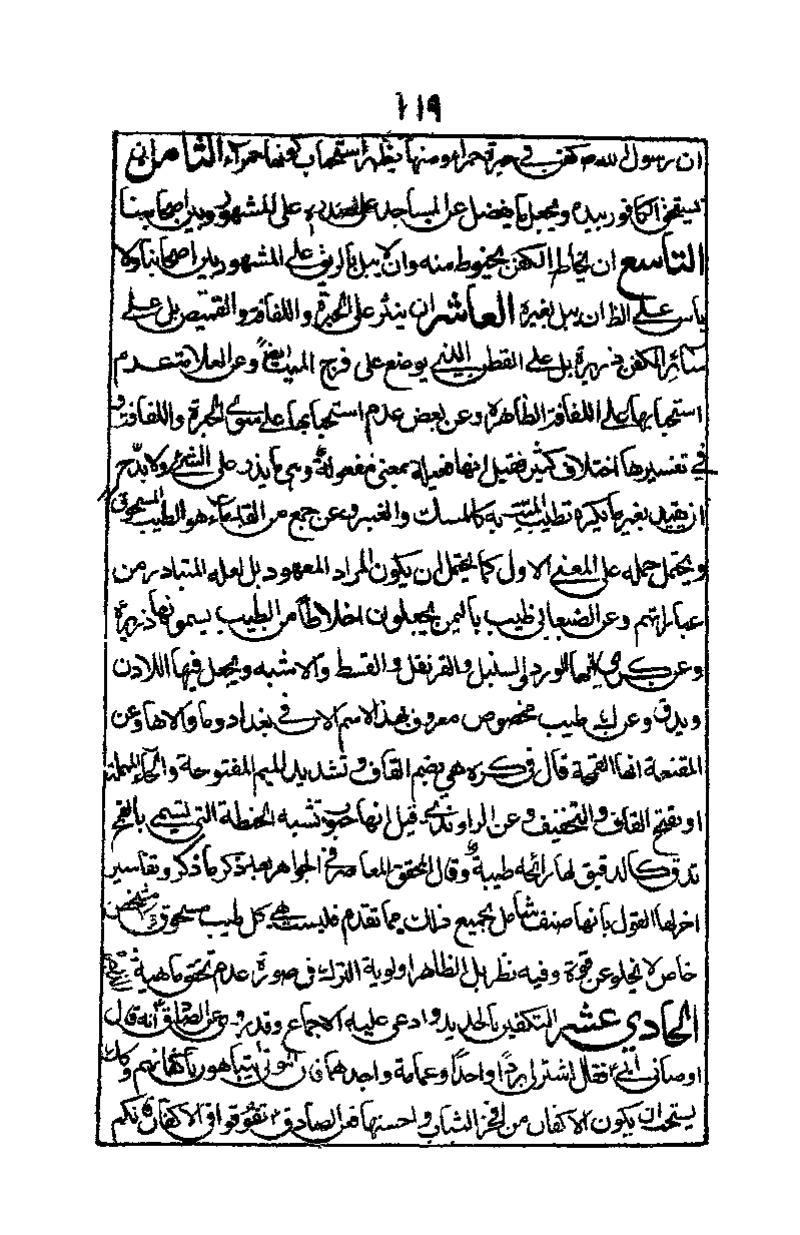 ١١٩
ان رسول الله ص كفن في حبرة حمراء ومنها يظهر استحباب كونها حمراء الثامن ان
يسحق الكافور بيده ويجعل ما يفضل عن المساجد على صدره على المشهور وبين اصحابنا
التاسع ان يخاط الكفن بخيوط منه وان لا يبل بالريق على المشهور بين اصحابنا ولا
باس على الظ ان يبل بغيره العاشر ان ينثر على الحبرة واللفافة والقميص بل على
سائر الكفن ذريرة بل على القطن الذي يوضع على فرج الميت ايضا وعن العلامة عدم
استحبابها على اللفافة الظاهرة وعن بعض عدم استحبابها على سوى الحبرة واللفافة و
في تفسيرها اختلاف كثير فقيل انها فعيلة بمعنى مفعولة وهي ما يذر على الشئ ولا بد ح
ان يقيد بغير ما يكره تطييب الميت به كالمسك والعنبر وعن جمع من القدماء هو الطيب المسحوق
ويحتمل حمله على المعنى الاول كما يحتمل ان يكون المراد المعهود بل لعله المتبادر من
عباراتهم وعن الصنعاني طيب باليمن يجعلون اخلاطا من الطيب يسمونها ذريرة
وعن انها الورد والسنبل والقرنفل والقسط والاشبه ويجعل فيها اللادن
ويدق وعن طيب مخصوص معروف بهذا الاسم الان في بغداد وما والاها وعن
المقنعة انها القمحة قال في كره هي بضم القاف وتشديد الميم المفتوحة والحاء المهملة
او بفتح القاف والتخفيف وعن الراوندي قيل انها حبوب تشبه الحنطة التي تسمى بالقمح
تدق كالدقيق لها رائحة طيبة وقال المحقق المعاصر في الجواهر بعد ذكر ما ذكر وتفاسير
اخر لها القول بانها صنف شامل لجميع ذلك مما تقدم فليست هي كل طيب مسحوق ولا مشخص
خاص لا يخلو عن قوة وفيه نظر بل الظاهر اولوية الترك في صورة عدم تحقق ماهية
الحادي عشر التكفين بالجديد وادعى عليه الاجماع وقد روي عن الصادق ع انه قال
اوصاني ابي ع فقال اشتر لي بردا واحدا وعمامة واجدهما فان الموتى يتباهون باكفانهم وكك
يستحب ان يكون الاكفان من افخر الثياب واحسنها فعن الصادق ع تنوقوا في الاكفان فانكم